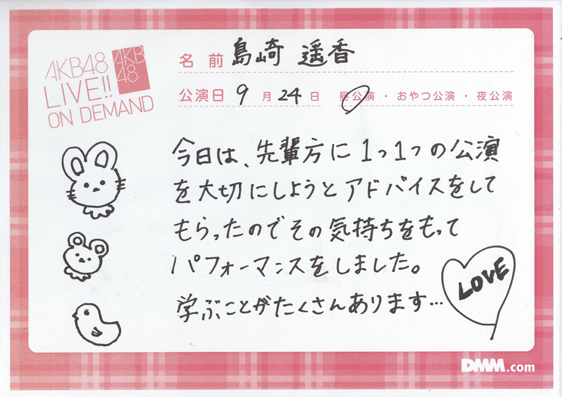 AKB48
LIVE!!
ON DEMAND
AKB
48
名前 島崎 遥香
公演日 9月24日 昼公演・おやつ公演・夜公演
今日は、先輩方に1つ1つの公演
を大切にしようとアドバイスをして
もらったのでその気持ちをもって
パフォーマンスをしました。
学ぶことがたくさんあります…
LOVE
DMM.com